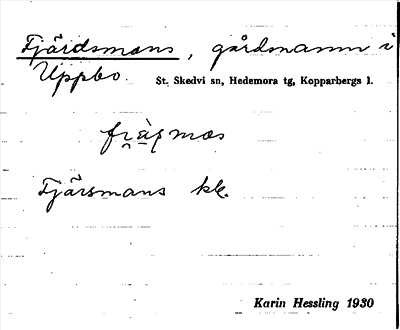 Fjärdsmans, gårdsnamn i
Uppbo. St. Skedvi sn, Hedemora tg, Kopparbergs l.
Fjärsmans kk.
Karin Hessling 1930